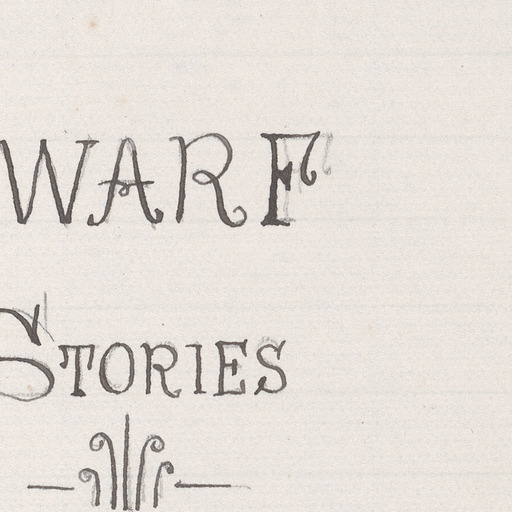 WARF
STORIES